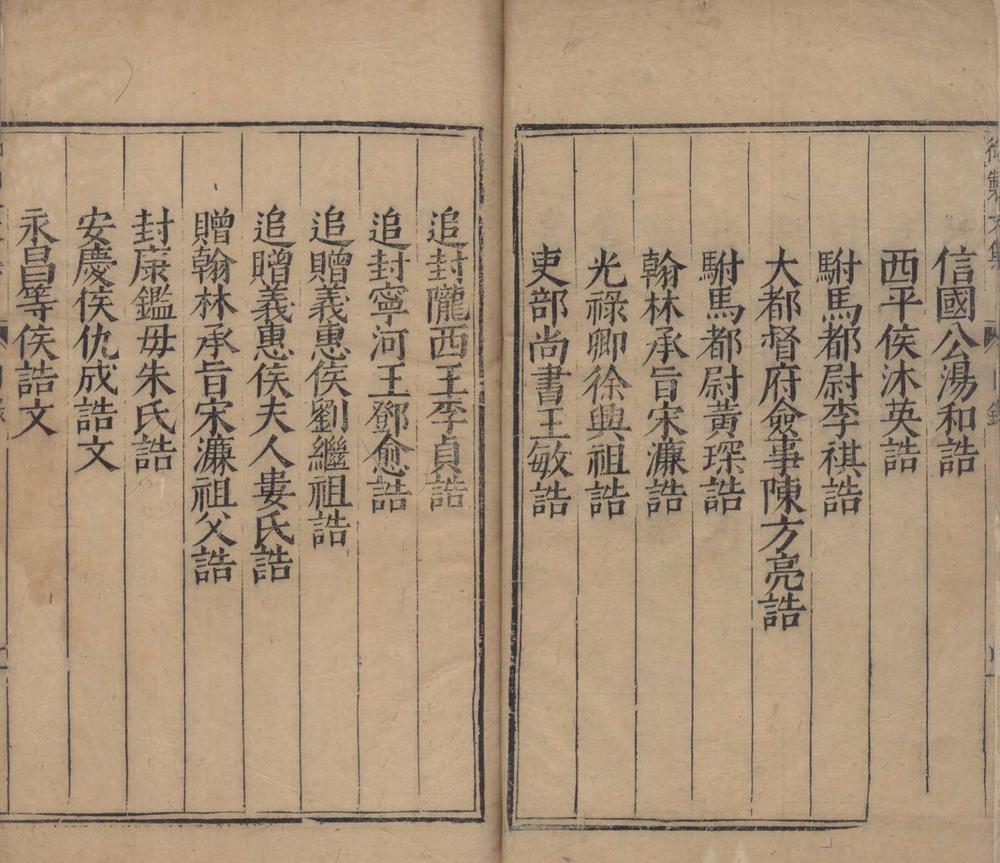 御製文集
目錄
信國公湯和誥
西平侯沐英誥
駙馬都尉李祺誥
大都督府僉事陳方亮誥
駙馬都尉黃琛誥
翰林承旨宋濂誥
光祿卿徐興祖誥
吏部尚書王敏誥
追封隴西王李貞誥
追封寧河王鄧愈誥
追贈義惠侯劉繼祖誥
追贈義惠侯夫人婁氏誥
贈翰林承旨宋濂祖父誥
封康鑑毋朱氏誥
安慶侯仇成誥文
永昌等侯誥文